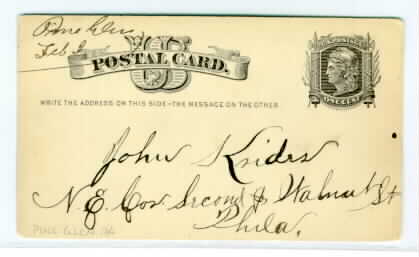 Pine Glen
Feb 2
U S
POSTAL CARD.
U.S. POSTAGE
ONE CENT
WRITE THE ADDRESS ON THIS SIDE-THE MESSAGE ON THE OTHER
John Krider
N.E. Cor Second & Walnut St
Phila.
PINE GLEN, PA